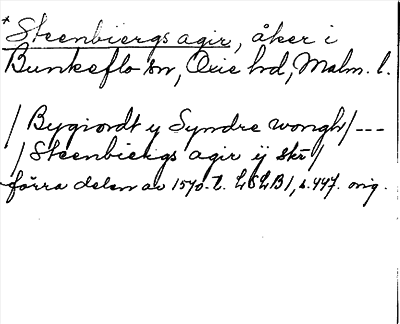 * Steenbiergs agir, åker i
Bunkeflo sn, Oxie hd, Malm. l.
/ Bygiordt y Syndre wongh / ---
/ Steenbiergs agir ÿ skr /
förra delen av 1570-t. LSLB I, s. 447. orig.